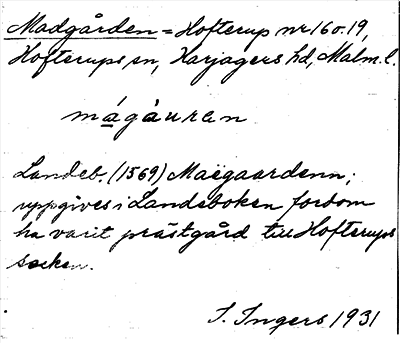 Madgården = Hofterup nr 16 o. 19,
Hofterups sn, Harjagers hd, Malm. l.
mágàuren
Landeb. (1569) Maëgaardenn;
uppgives i Landeboken fordom
ha varit prästgård till Hofterups
socken.
I. Ingers 1931